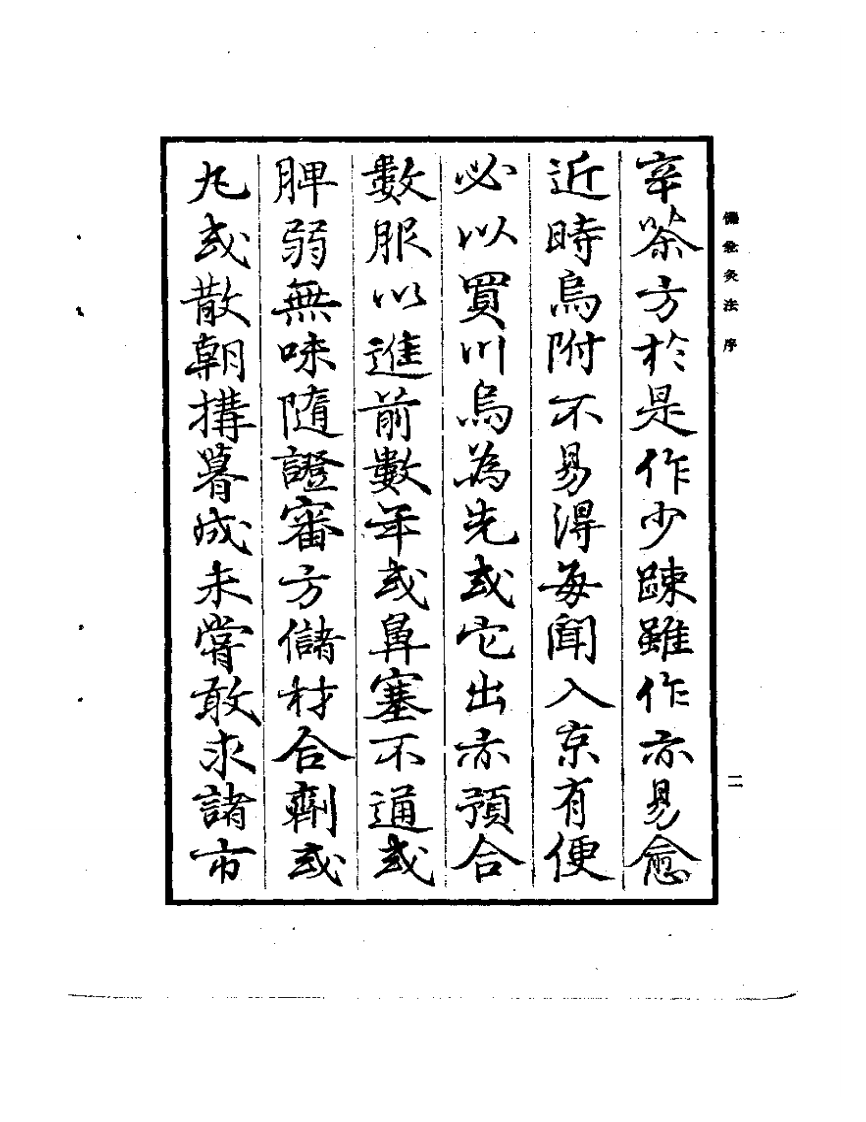 辛茶方於是作少踈雖作亦易愈
近時烏附不易得每聞入京有便
必以買川烏為先或它出亦預合
數服以進前數年或鼻塞不通或
脾弱無味隨證審方儲材合劑或
丸或散朝搆暮成未嘗敢求諸市
備急灸法 序
二